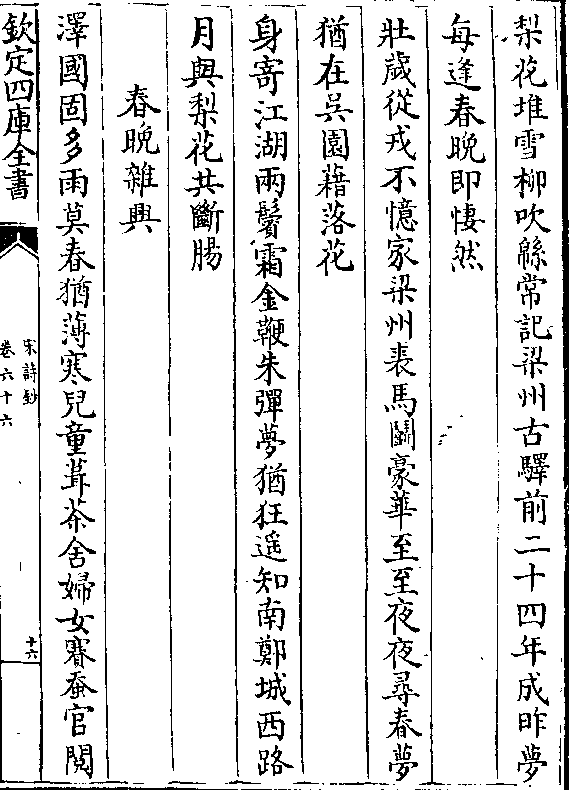 梨花堆雪柳吹緜常記梁州古驛前二十四年成昨夢
每逢春晚即悽然
壯歲從戎不憶家梁州裘馬鬭豪華至至夜夜尋春夢
猶在吳園藉落花
身寄江湖兩鬢霜金鞭朱彈夢猶狂遥知南鄭城西路
月與梨花共斷腸
春晚雜興
澤國固多雨莫春猶薄寒兒童葺茶舍婦女賽蚕官閲
欽定四庫全書
宋詩鈔
卷六十六
十六